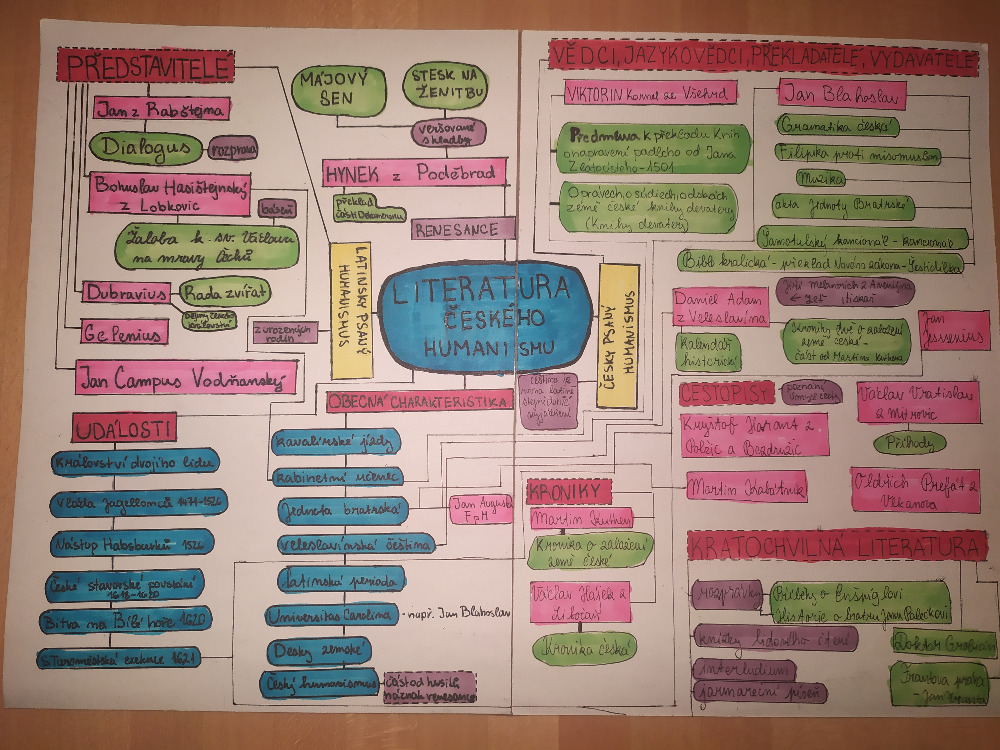 PŘEDSTAVITELÉ
Jan z Rabštejna
Dialogus
rozprava
Bohuslav Hasištejnský
z Lobkovic
báseň
Žaloba k sv. Václavu
na mravy Čechů
Dubravius
Rada zvířat
Gelenius
z urozených
rodin
Jan Campus Vodňanský
MÁJOVÝ
SEN
STESK NA
ŽENITBU
veršované
skladby
HYNEK z Poděbrad
překlad
části Dekameronu
RENESANCE
LATINSKY PSANÝ
HUMANISMUS
LITERATURA
ČESKÉHO
HUMANISMU
ČESKY PSANÝ
HUMANISMUS
VĚDCI, JAZYKOVĚDCI, PŘEKLADATELÉ, VYDAVATELÉ
VIKTORIN Kornel ze Všehrd
Předmluva k překladu Knih
o napravení padlého od Jana
Zlatoústého - 1501
O právech, o súdiech, o dskách
země české knihy devatery
(Knihy devatery)
Jan Blahoslav
Gramatika česká
Filipika proti misomusům
Muzika
akta Jednoty Bratrské
Šamotulský kancionál - kancionál
Bible kralická - překlad Nového zákona - Šestidílka
Daniel Adam
z Veleslavína
Jiří Melantrich z Aventina
tiskař
Kalendář
historický
Kroniky dvě o založení
země české -
část od Martina Kuthena
Jan
Jessenius
CESTOPISY
poznání
Kryštof Harant z
Polžic a Bezdružic
Václav Vratislav
z Mitrovic
Příhody
Martin Kabátník
Oldřich Prefát z
Vlkanova
UDÁLOSTI
Království dvojího lidu
Vláda Jagellonců 1471-1526
Nástup Habsburků 1526
České stavovské povstání
1618-1620
Bitva na Bílé hoře 1620
Staroměstská exekuce 1621
OBECNÁ CHARAKTERISTIKA
kavalírské jízdy
kabinetní učenec
Jednota bratrská
Jan Augusta
veleslavínská čeština
latinská perioda
Universitas Carolina
- např. Jan Blahoslav
Desky zemské
Český humanismus
část od husitů
náznak renesance
KRONIKY
Martin Kuthen
Kronika o založení
země české
Václav Hájek z
Libočan
Kronika česká
KRATOCHVILNÁ LITERATURA
rozprávky
Příběhy o Enšpíglovi
Historie o bratru Janu Palečkovi
knížky lidového čtení
interludium
jarmareční píseň
Doktor Grobian
Frantova práva